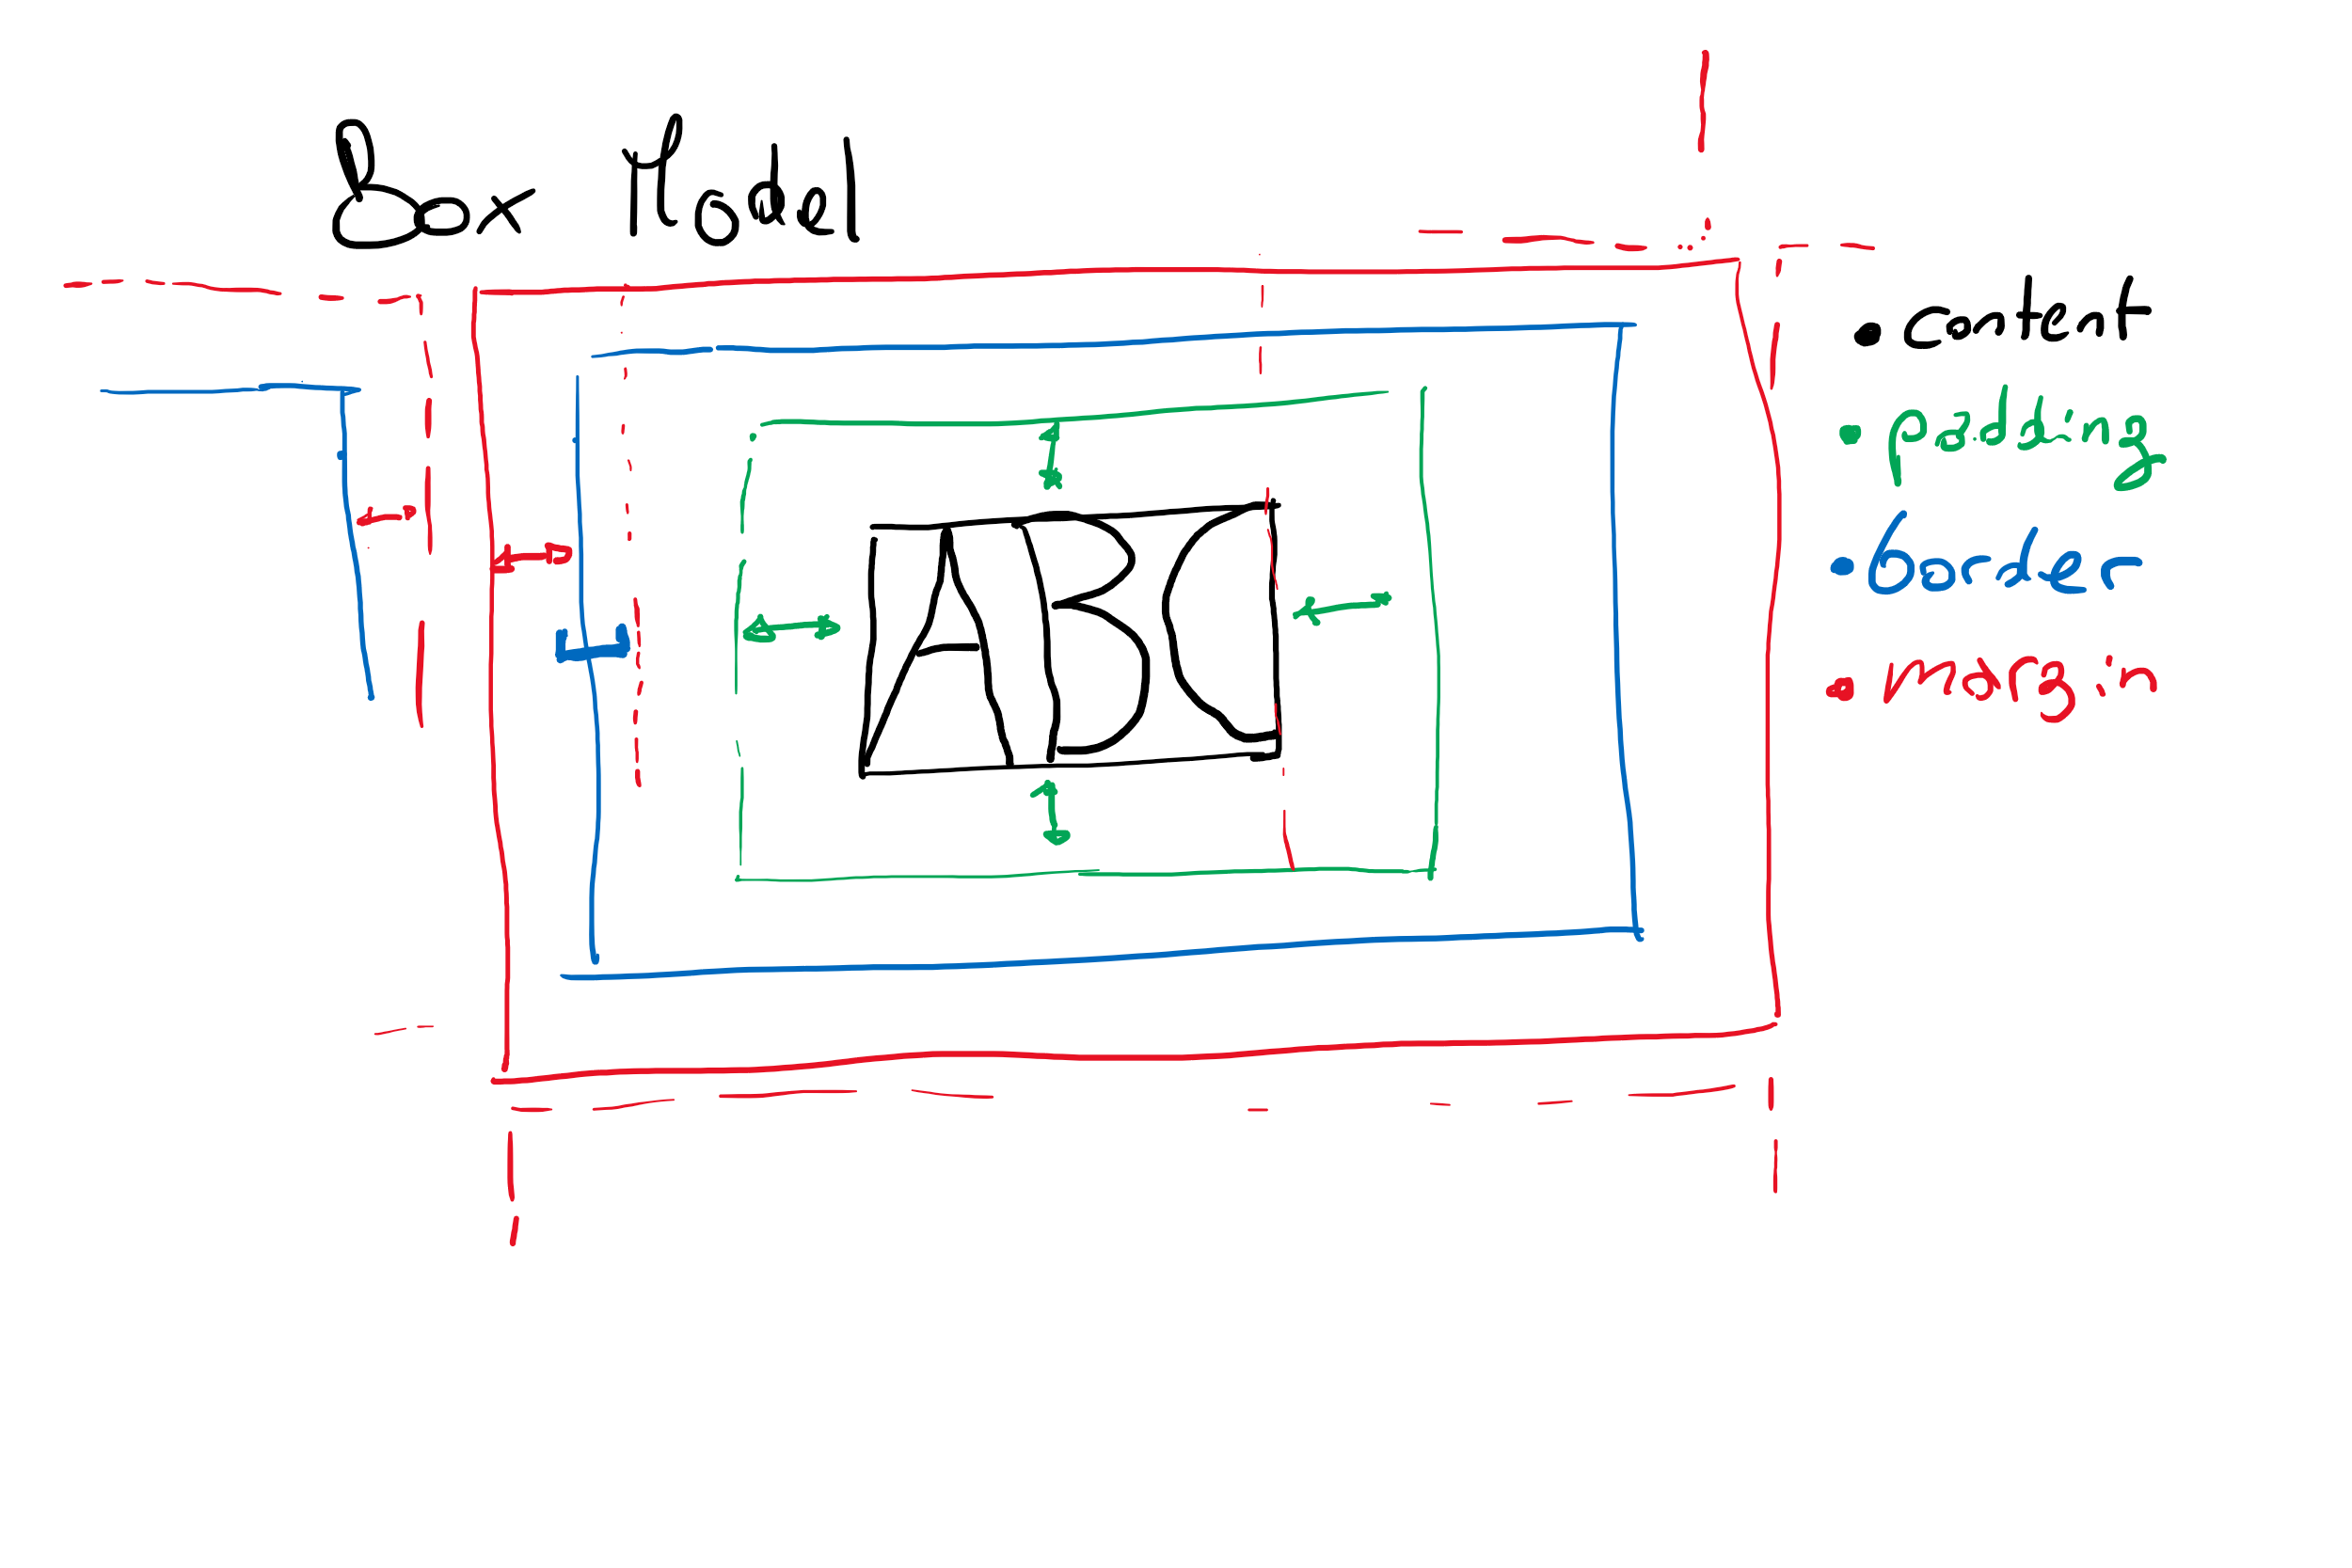 Box Model
• content
• padding
• border
• margin
ABC